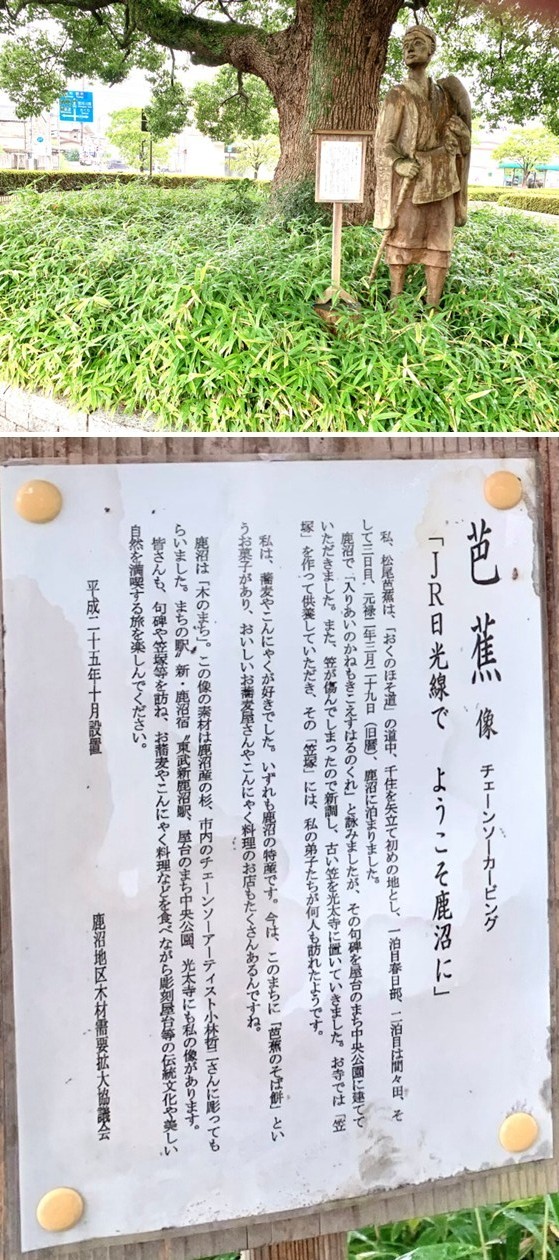 芭蕉像 チェーンソーカービング
「JR日光線で ようこそ鹿沼に」
私、松尾芭蕉は、「おくのほそ道」の道中、千住を矢立て初めの地とし、一泊目春日部、二泊目は間々田、そ
して三日目、元禄二年三月二十九日（旧暦）、鹿沼に泊まりました。
鹿沼で「入りあいのかねもきこえすはるのくれ」と詠みましたが、その句碑を屋台のまち中央公園に建てて
いただきました。また、笠が傷んでしまったので新調し、古い笠を光太寺に置いていきました。お寺では「笠
塚」を作って供養していただき、その「笠塚」には、私の弟子たちが何人も訪れたようです。
私は、蕎麦やこんにゃくが好きでした。いずれも鹿沼の特産です。今は、このまちに「芭蕉のそば餅」とい
うお菓子があり、おいしいお蕎麦屋さんやこんにゃく料理のお店もたくさんあるんですね。
鹿沼は「木のまち」。この像の素材は鹿沼産の杉、市内のチェーンソーアーティスト小林哲二さんに彫っても
らいました。まちの駅〝新・鹿沼宿〟東武新鹿沼駅、屋台のまち中央公園、光太寺にも私の像があります。
皆さんも、句碑や笠塚等を訪ね、お蕎麦やこんにゃく料理などを食べながら彫刻屋台等の伝統文化や美しい
自然を満喫する旅を楽しんでください。
平成二十五年十月設置
鹿沼地区木材需要拡大協議会